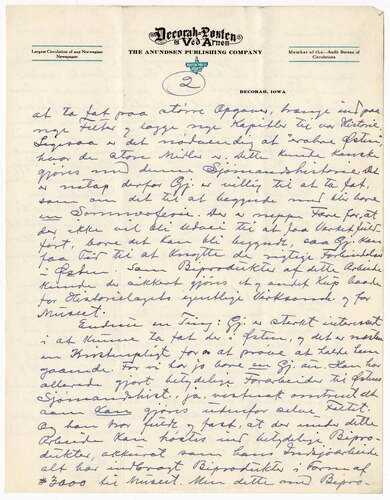 Decorah-Posten
& Ved Arnen
Largest Circulation of any Norwegian
Newspaper
THE ANUNDSEN PUBLISHING COMPANY
Member of the Audit Bureau of
Circulations
2
DECORAH, IOWA
at ta fat paa större Opgaver, trænge ind paa
nye Felter og lægge nye Kapitler til vor Historie.
Ligesaa er det nödvendig at
hvor de store Midler er, dette kunde kanske
gjores med denne Sjömandshistorie. Det
er netop derfor Gj. er villig til at ta fat,
som om det til at begynde med bli bare
en Sommerferie. Der er neppe Fare for, at
der ikke vil bli Udvei til at faa Værket fuld-
fört, bare det kan bli begyndt, saa Gj. kan
faa Tid til at knytte de nytige Forbindelser
i Östen. Som Biprodukter af dette Arbeide
kunde der sikkert gjores et og andet Kup baade
for Historielagets egentlige Virksomh. og for
Museet.
Endnu en Ting: Gj. er sterkt interessert
i at kunne ta fat der i Östen, og det er næsten
en for os at prove at holde ham
gaaende. For vi har jo bare en Gj. an. Han har
allerede gjort betydelige Forarbeider til
Sjömandshist. ja, omtrent alt
som kan gjores udenfor selve Feltet.
Og han tror fuldt og fast, at der under dette
Arbeide kan höstes ind betydelige Bipro-
dukter, akkurat som hans Indsjöarbeide
alt har indbragt Biprodukter i Form af
$3000 til Museet. Men dette med Bipro-